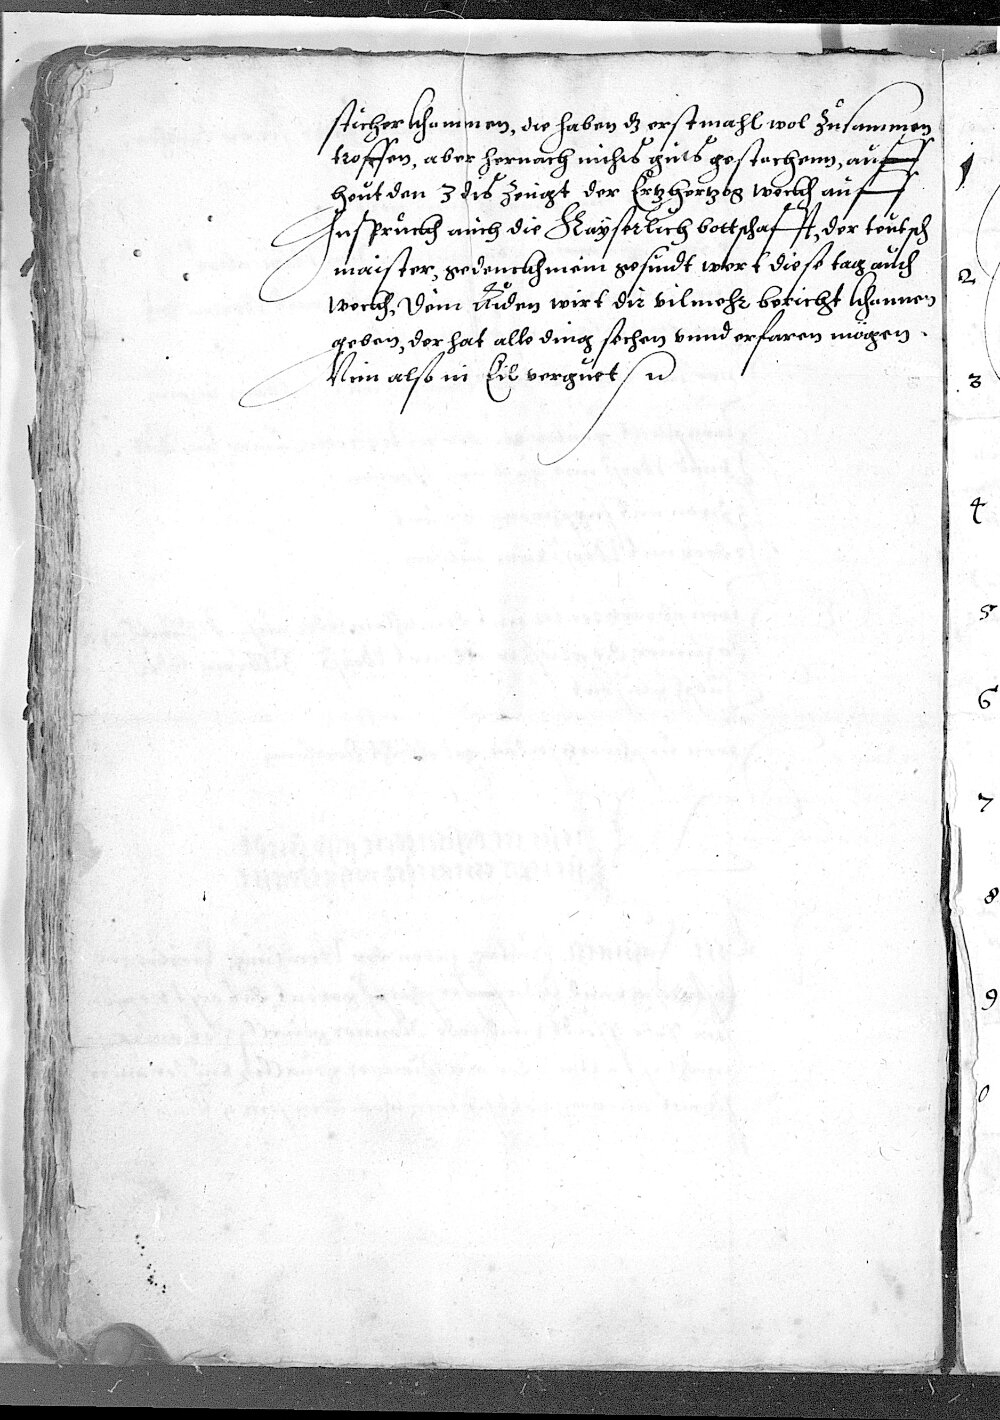 sticher khammen, die haben dz erstmahl wol zusammen
troffen, aber hernach nichts guts gestochenn, auff
heut den 3 dis zeugt der Ertzhertzog weckh auff
Inspruckh auch die Kayserlich bottschafft, der teutsch
maister, gedenckh mein gesundt wert diese tag auch
weckh, Dein Aiden wirt dir vilmehr bericht khannen
geben, der hat alle ding sechen vnnd erfaren mögen.
Nim also in Eil verguet
1
2
3
4
5
6
7
8
9
0